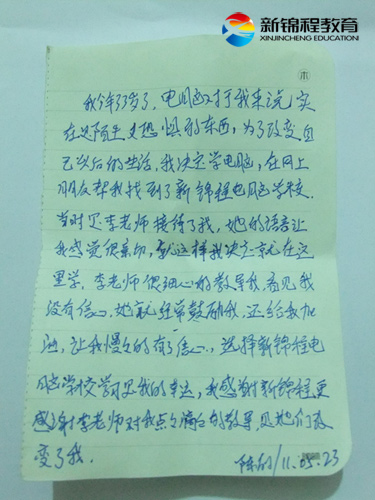 新锦程教育
XINJINCHENG EDUCATION
木
我今年33岁了，电脑对于我来说实
在是陌生又恐惧的东西，为了改变自
己以后的生活，我决定学电脑，在网上
朋友帮我找到了新锦程电脑学校.
当时是李老师接待了我，她的语言让
我感觉很亲切，就这样我决定就在这
里学，李老师很细心的教导我，看见我
没有信心，她就经常鼓励我，还给我加
油，让我慢慢的有了信心，选择新锦程电
脑学校学习是我的幸运，我感谢新锦程更
感谢李老师对我点点滴滴的教导，是她们改
变了我.
11.05.23